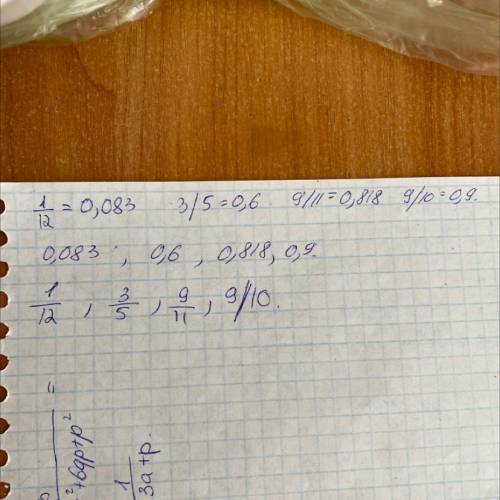 1/12 = 0,083 3/5=0,6 9/11=0,818 9/10=0,9.
0,083, 0,6, 0,818, 0,9.
1/12, 3/5, 9/11, 9/10.
²+6ap+p² =
1/3a+p.